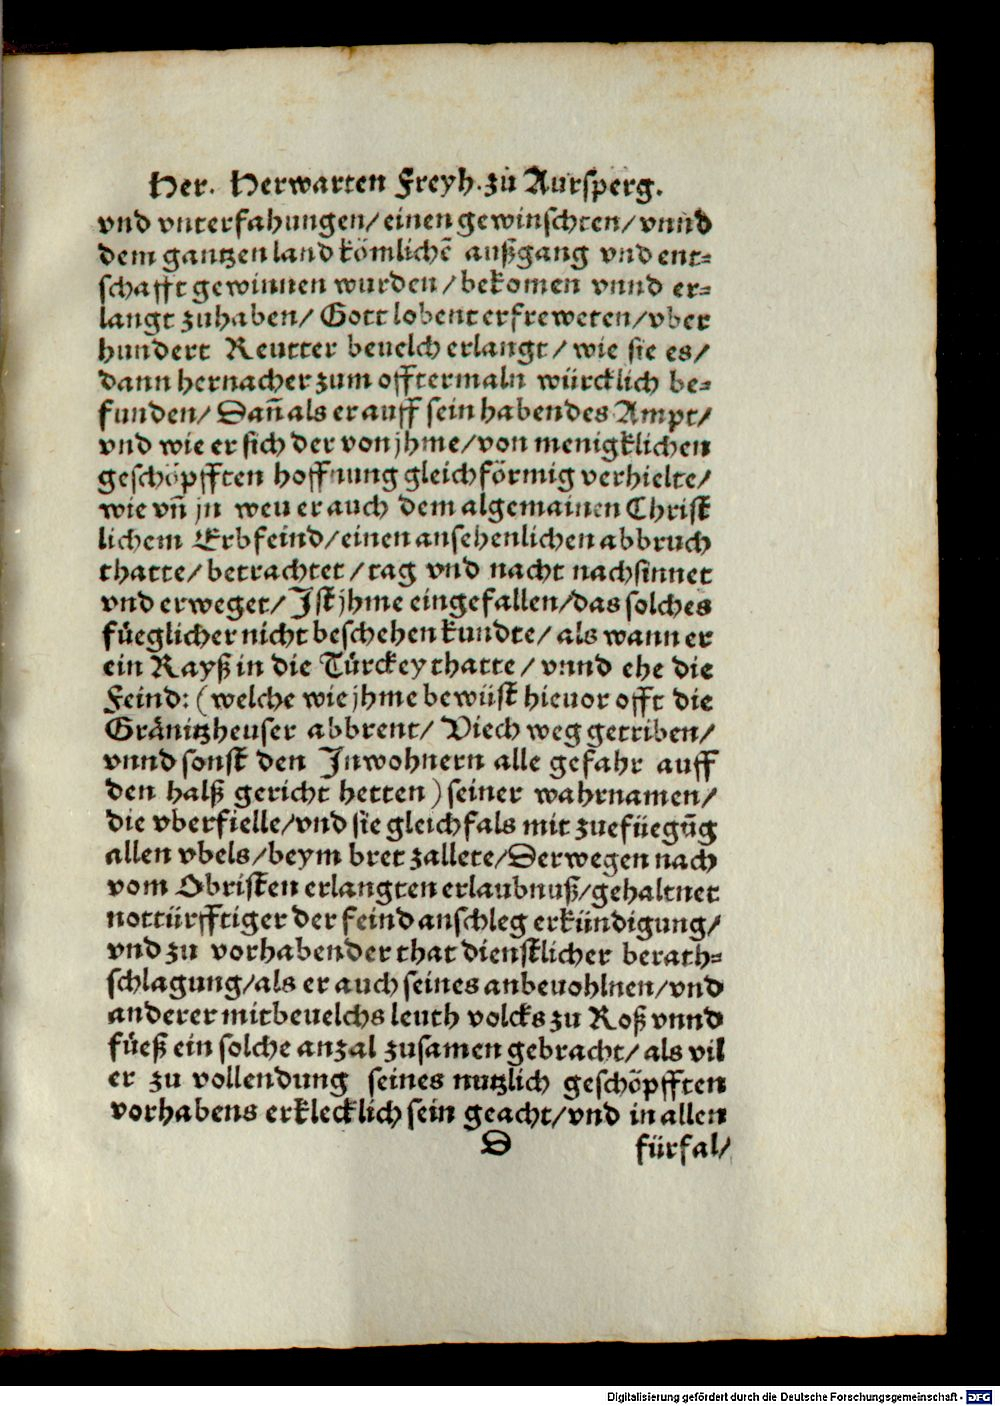 Her. Herwarten Freyh. zu Aursperg.
vnd vnterfahungen/ einen gewinschten/ vnnd
dem gantzen land kömlichẽ außgang vnd ent⸗
schafft gewinnen wurden/ bekomen vnnd er⸗
langt zuhaben/ Gott lobent erfreweten/ vber
hundert Reutter beuelch erlangt/ wie sie es/
dann hernacher zum offtermaln würcklich be⸗
funden/ Dañ als er auff sein habendes Ampt/
vnd wie er sich der von jhme/ von menigklichen
geschöpfften hoffnung gleichförmig verhielte/
wie vñ jn weu er auch dem algemainen Christ
lichem Erbfeind/ einen ansehenlichen abbruch
thatte/ betrachtet/ tag vnd nacht nachsinnet
vnd erweget/ Ist jhme eingefallen/ das solches
füeglicher nicht beschehen kundte/ als wann er
ein Rayß in die Türckey thatte/ vnnd ehe die
Feind: (welche wie jhme bewüst hieuor offt die
Gränitzheuser abbrent/ Viech weg getriben/
vnnd sonst den Inwohnern alle gefahr auff
den halß gericht hetten) seiner wahrnamen/
die vberfielle/ vnd sie gleichfals mit zuefüegũg
allen vbels/ beym bret zallete/ Derwegen nach
vom Obristen erlangten erlaubnuß/ gehaltner
nottürfftiger der feind anschleg erkündigung/
vnd zu vorhabender that dienstlicher berath⸗
schlagung/ als er auch seines anbeuohlnen/ vnd
anderer mitbeuelchs leuth volcks zu Roß vnnd
füeß ein solche anzal zusamen gebracht/ als vil
er zu vollendung seines nutzlich geschöpfften
vorhabens erklecklich sein geacht/ vnd in allen
D fürfal/
Digitalisierung gefördert durch die Deutsche Forschungsgemeinschaft - DFG